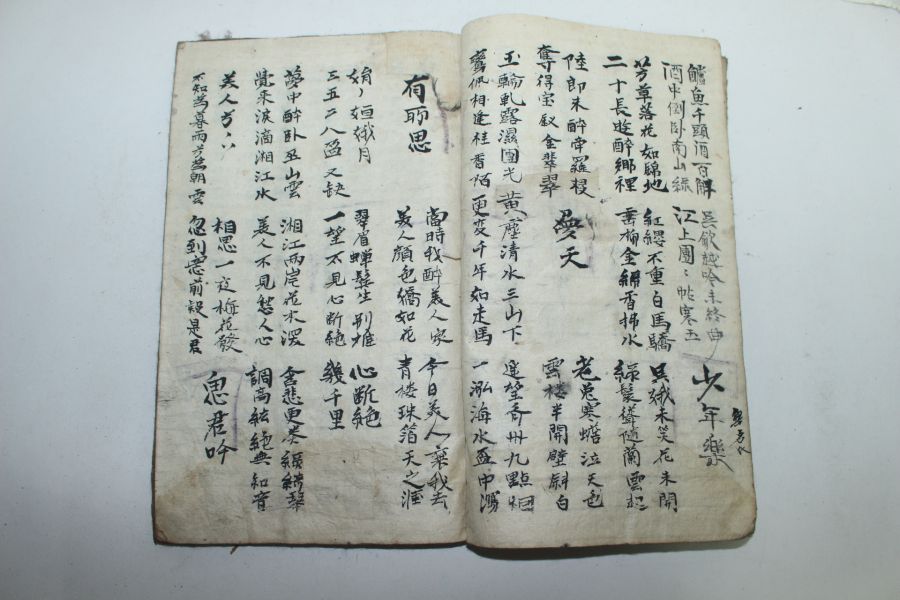 鱸魚千頭酒百斛
酒中倒臥南山綠
吳歈越吟未終曲
江上團〻帖寒玉
少年樂
芳草落花如錦地
二十長遊醉鄉裡
紅纓不重白馬驕
垂柳金絲香拂水
吳娥未笑花未開
綠鬢聳墮蘭雲起
陸郎未醉牽羅袂
奪得宝釵金翡翠
夢天
老兎寒蟾泣天色
雲樓半開壁斜白
玉輪軋露濕團光
鸞佩相逢桂香陌
黃塵清水三山下
更変千年如走馬
遙望齊州九點烟
一泓海水盃中瀉
有所思
當時我醉美人家
美人顏色嬌如花
今日美人棄我去
青樓珠箔天之涯
娟〻姮娥月
三五二八盈又缺
翠眉蟬鬢生別離
一望不見心斷絶
心斷絶
幾千里
夢中醉臥巫山雲
覺來淚滴湘江水
湘江兩岸花木深
美人不見愁人心
含愁更奏綠綺琴
調高絃絶無知音
美人兮〻〻
不知為暮雨兮為朝雲
相思一夜梅花發
忽到窓前疑是君
思君吟